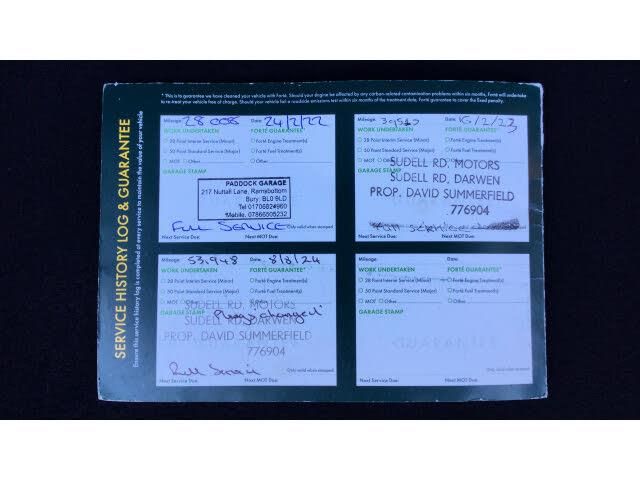 SERVICE HISTORY LOG & GUARANTEE
Ensure this service history log is completed at every service to maintain the value of your vehicle
* This is to guarantee we have cleaned your vehicle with Forté. Should your engine be affected by any carbon-related contamination problems within six months, Forté will undertake
to re-treat your vehicle free of charge. Should your vehicle fail a roadside emissions test within six months of the treatment date, Forté guarantee to cover the fixed penalty.
Mileage: 28 008 Date: 24/2/22
WORK UNDERTAKEN FORTÉ GUARANTEE*
28 Point Interim Service (Minor) Forté Engine Treatment(s)
50 Point Standard Service (Major) Forté Fuel Treatment(s)
MOT Other Other
GARAGE STAMP
PADDOCK GARAGE
217 Nuttall Lane, Ramsbottom
Bury. BL0 9LD
Tel 01706824960
Mobile. 07866505232
FULL SERVICE Only valid when stamped
Next Service Due: Next MOT Due:
Mileage: Date: 10/2/23
WORK UNDERTAKEN FORTÉ GUARANTEE*
28 Point Interim Service (Minor) Forté Engine Treatment(s)
50 Point Standard Service (Major) Forté Fuel Treatment(s)
MOT Other
GARAGE STAMP
SUDELL RD. MOTORS
SUDELL RD, DARWEN
PROP. DAVID SUMMERFIELD
776904
Full service
Next Service Due: Next MOT Due:
Mileage: 53,948 Date: 8/8/24
WORK UNDERTAKEN FORTÉ GUARANTEE*
28 Point Interim Service (Minor) Forté Engine Treatment(s)
50 Point Standard Service (Major) Forté Fuel Treatment(s)
MOT Other Other
SUDELL RD, MOTORS
GARAGE STAMP Plugs changed
SUDELL RD, DARWEN
PROP. DAVID SUMMERFIELD
776904
Full Service Only valid when stamped
Next Service Due: Next MOT Due:
Mileage: Date:
WORK UNDERTAKEN FORTÉ GUARANTEE*
28 Point Interim Service (Minor) Forté Engine Treatment(s)
50 Point Standard Service (Major) Forté Fuel Treatment(s)
MOT Other Other
GARAGE STAMP
Only valid when stamped
Next Service Due: Next MOT Due: